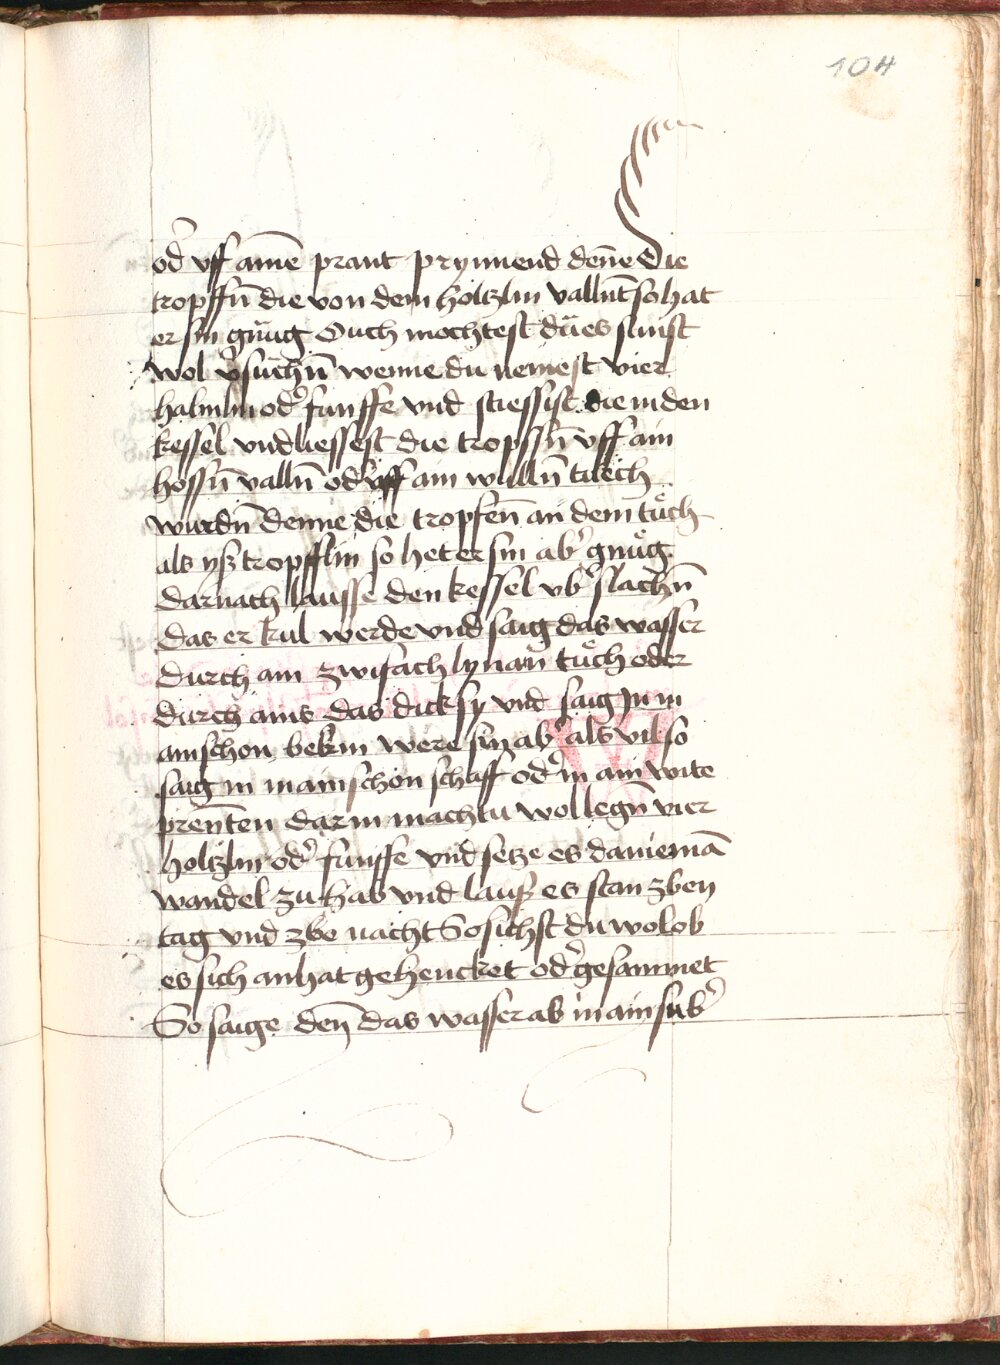 104
od̕ vff aine͂ prant prynnend den̅e Die
tropffn̅ die von dem höltzlin vallnt̅ so hat
er sin gnůg Ouch mochtest du es sunst
wol v̕suchn̅ wenne du nemest vier
halmlin od̕ funffe vnd stiessist die in den
kessel vnd liessest die tropffn̅ vff ain
hossn̅ valln̅ od̕ vff ain wulln̅ tůch
wurdn̅ denne die tropfen̅ an dem tůch
als ysz tropfflin so het er sin ab̕ gnůg
darnach lausse den kessel vb̕ slachn̅
das er kul werde vnd saig das wasser
durch ain zwifach lynan̅ tůch oder
durch ains das dick sy vnd saig Jn in
ain schon bekin were sin ab̕ als vil so
saig in in ain schon schaff od̕ in ain wite
pren̅ten dar in machtu wol legn̅ vier
holtzlin od̕ funffe vnd setze es da niema͂
wandel zu hab vnd lausz es stan zben
tag vnd zbo nacht So sichst du wol ob
es sich anhat gehencket od̕ gesammet
So saige den̅ das wasser ab in ain sub̕